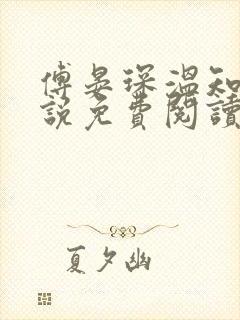 傅晏琛溫知
說免費閱讀
夏夕幽